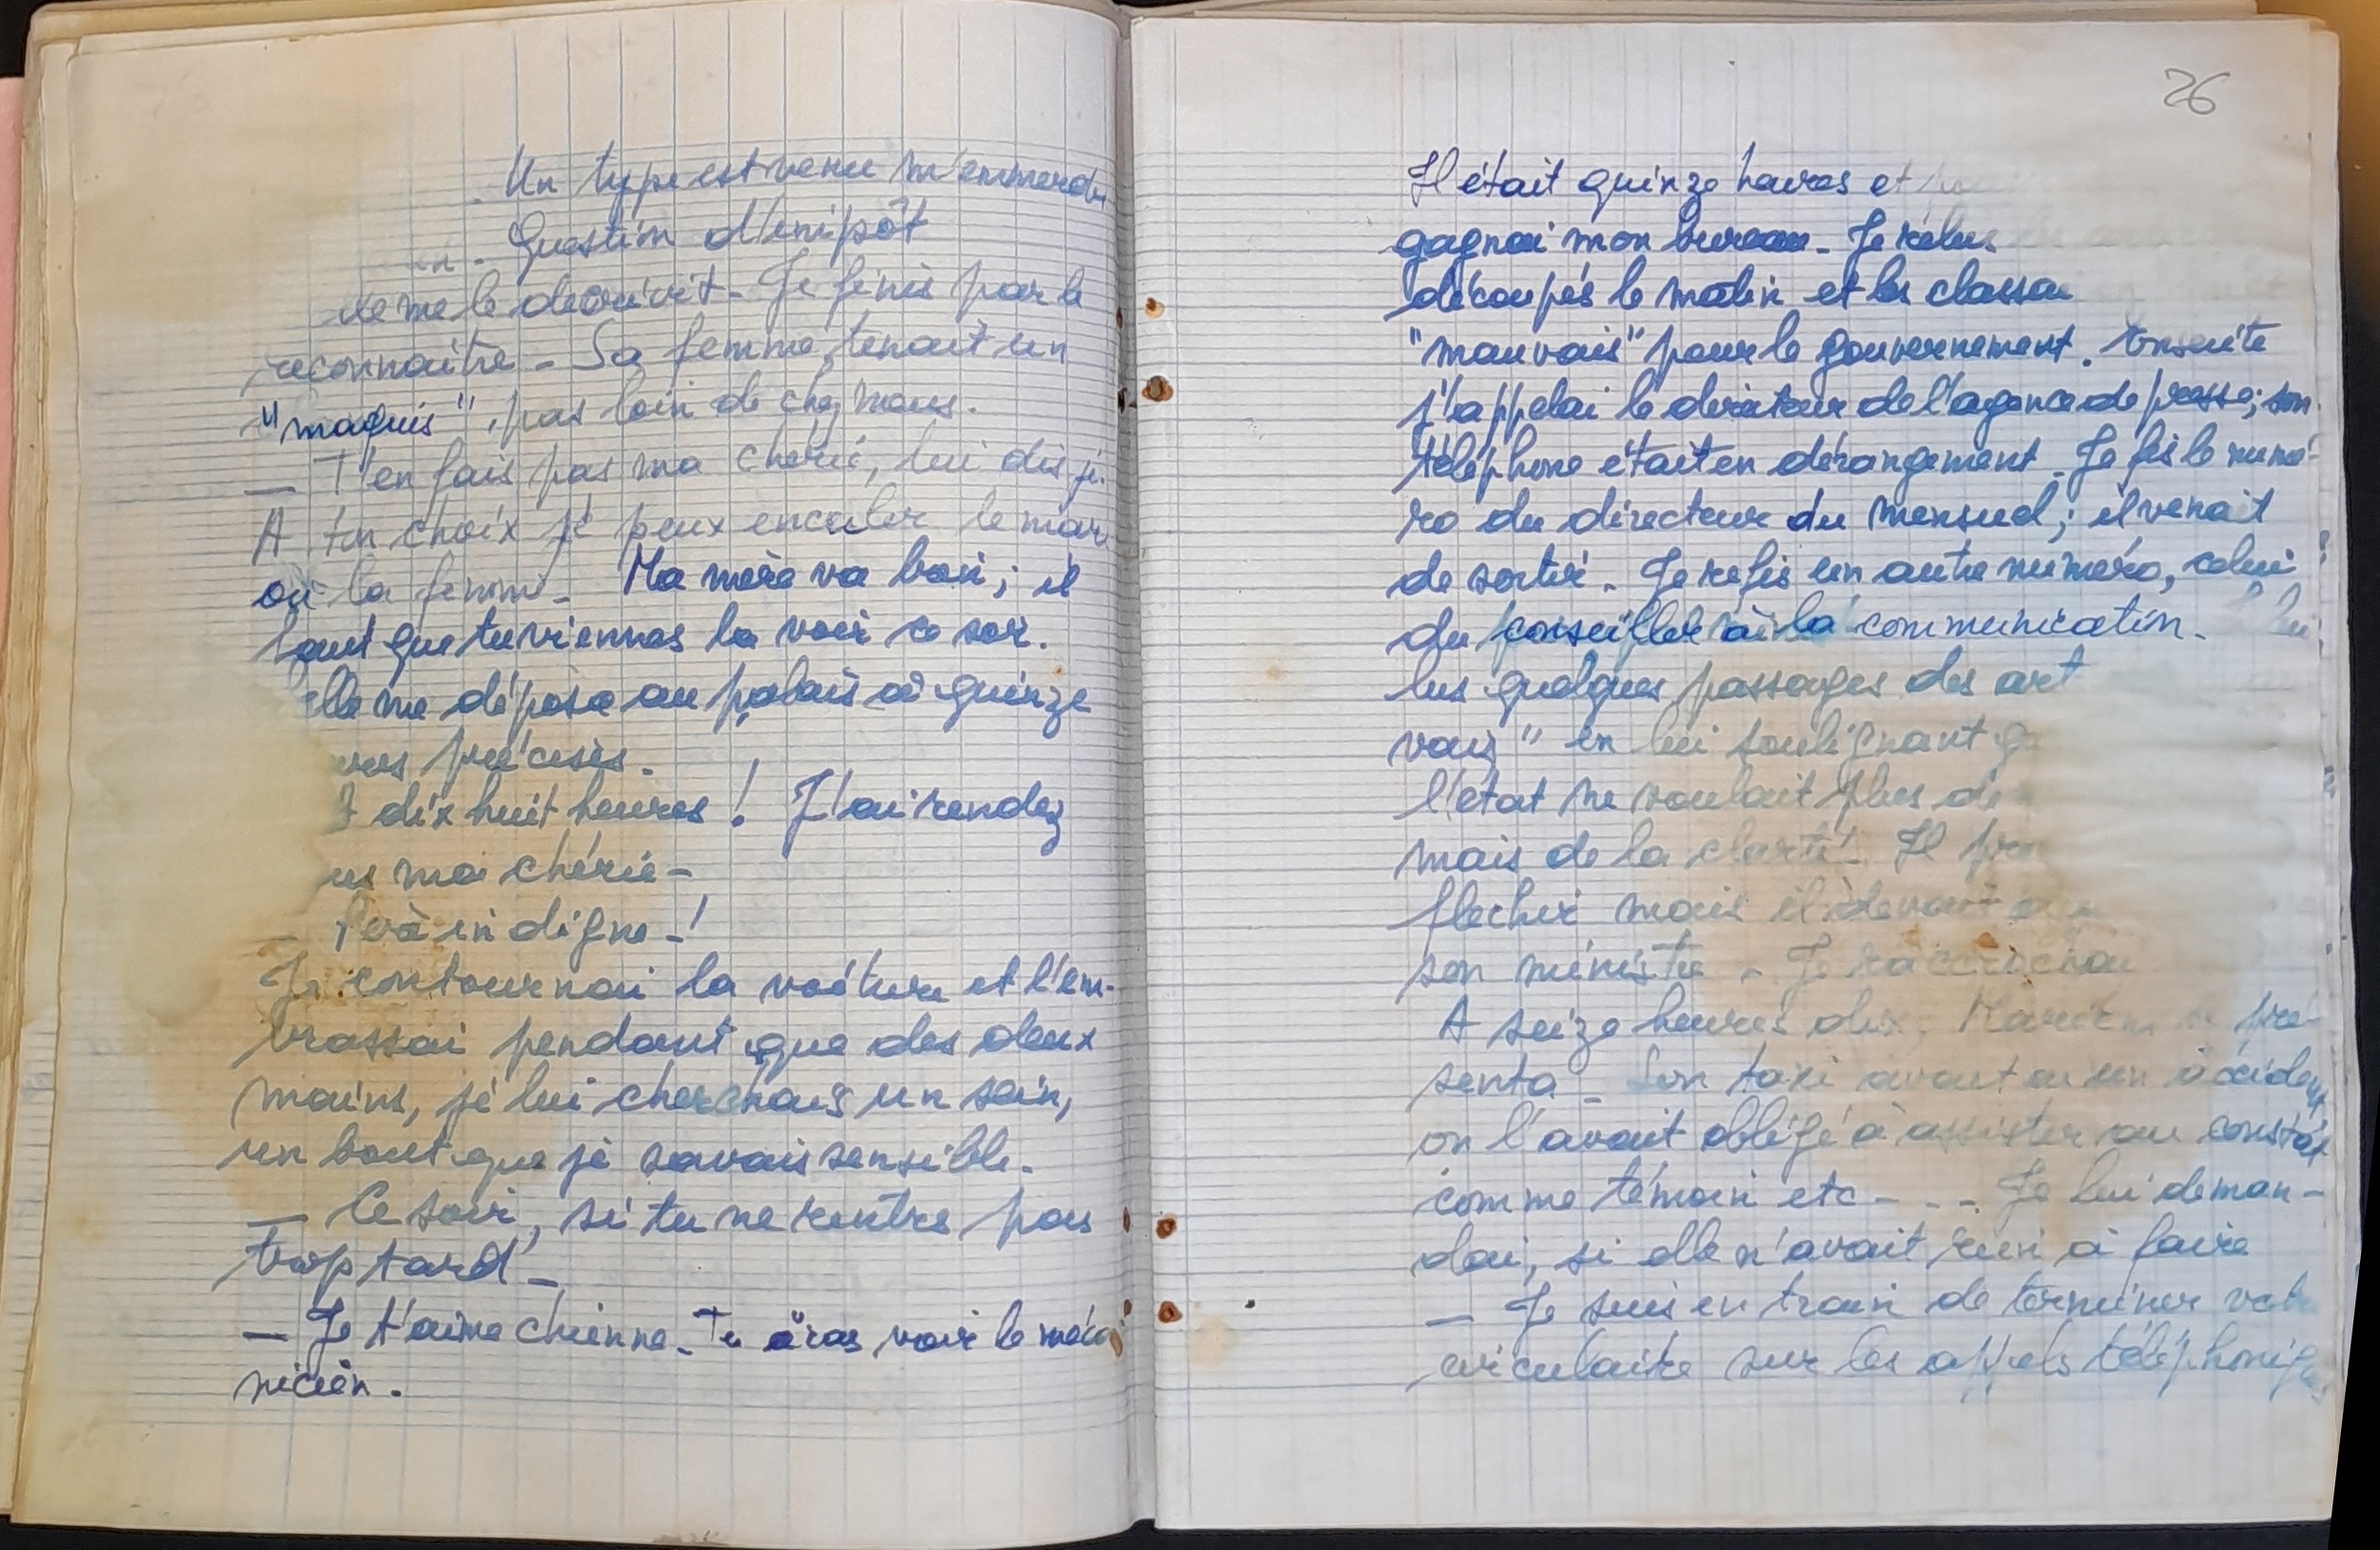 Un type est venu m'emmerder
Question d'impôt
me le décrivit. Je finis par le
reconnaître. Sa femme, tenait un
"maquis", pas loin de chez nous.
— T'en fais pas ma chérie, lui dis je.
A ton choix je peux enculer le mari
où la femme. Ma mère va bien; il
faut que tu viennes la voir ce soir.
elle me dépose au palais à quinze
précises.
dix huit heures ! J'ai rendez
ma chérie -
- indigne - !
Je contournai la voiture et l'em-
brassai pendant que des deux
mains, je lui cherchais un sein,
un bout que je savais sensible.
— Ce soir, si tu ne rentre pas
trop tard -
— Je t'aime chienne. Tu iras voir le méca
nicien.
26
Il était quinze heures et
gagnai mon bureau. Je relus
découpés le matin et les classai
"mauvais" pour le gouvernement. Ensuite
j'appelai le directeur de l'agence de presse; son
téléphone était en dérangement. Je fis le numé-
ro du directeur du mensuel; il venait
de sortir. Je refis un autre numéro, celui
du conseiller à la communication.
lus quelques passages des
vais" en lui soulignant
l'état ne voulait plus
mais de la clarté. Il
flechir mais il devait
son ministre. Je raccrochai
A seize heures dix, pré-
senta. Son taxi avait eu un accident
on l'avait obligé à assister au constat
comme témoin etc - - - Je lui deman-
dai, si elle n'avait rien à faire
— Je suis en train de terminer votre
circulaire sur les appels téléphoniques